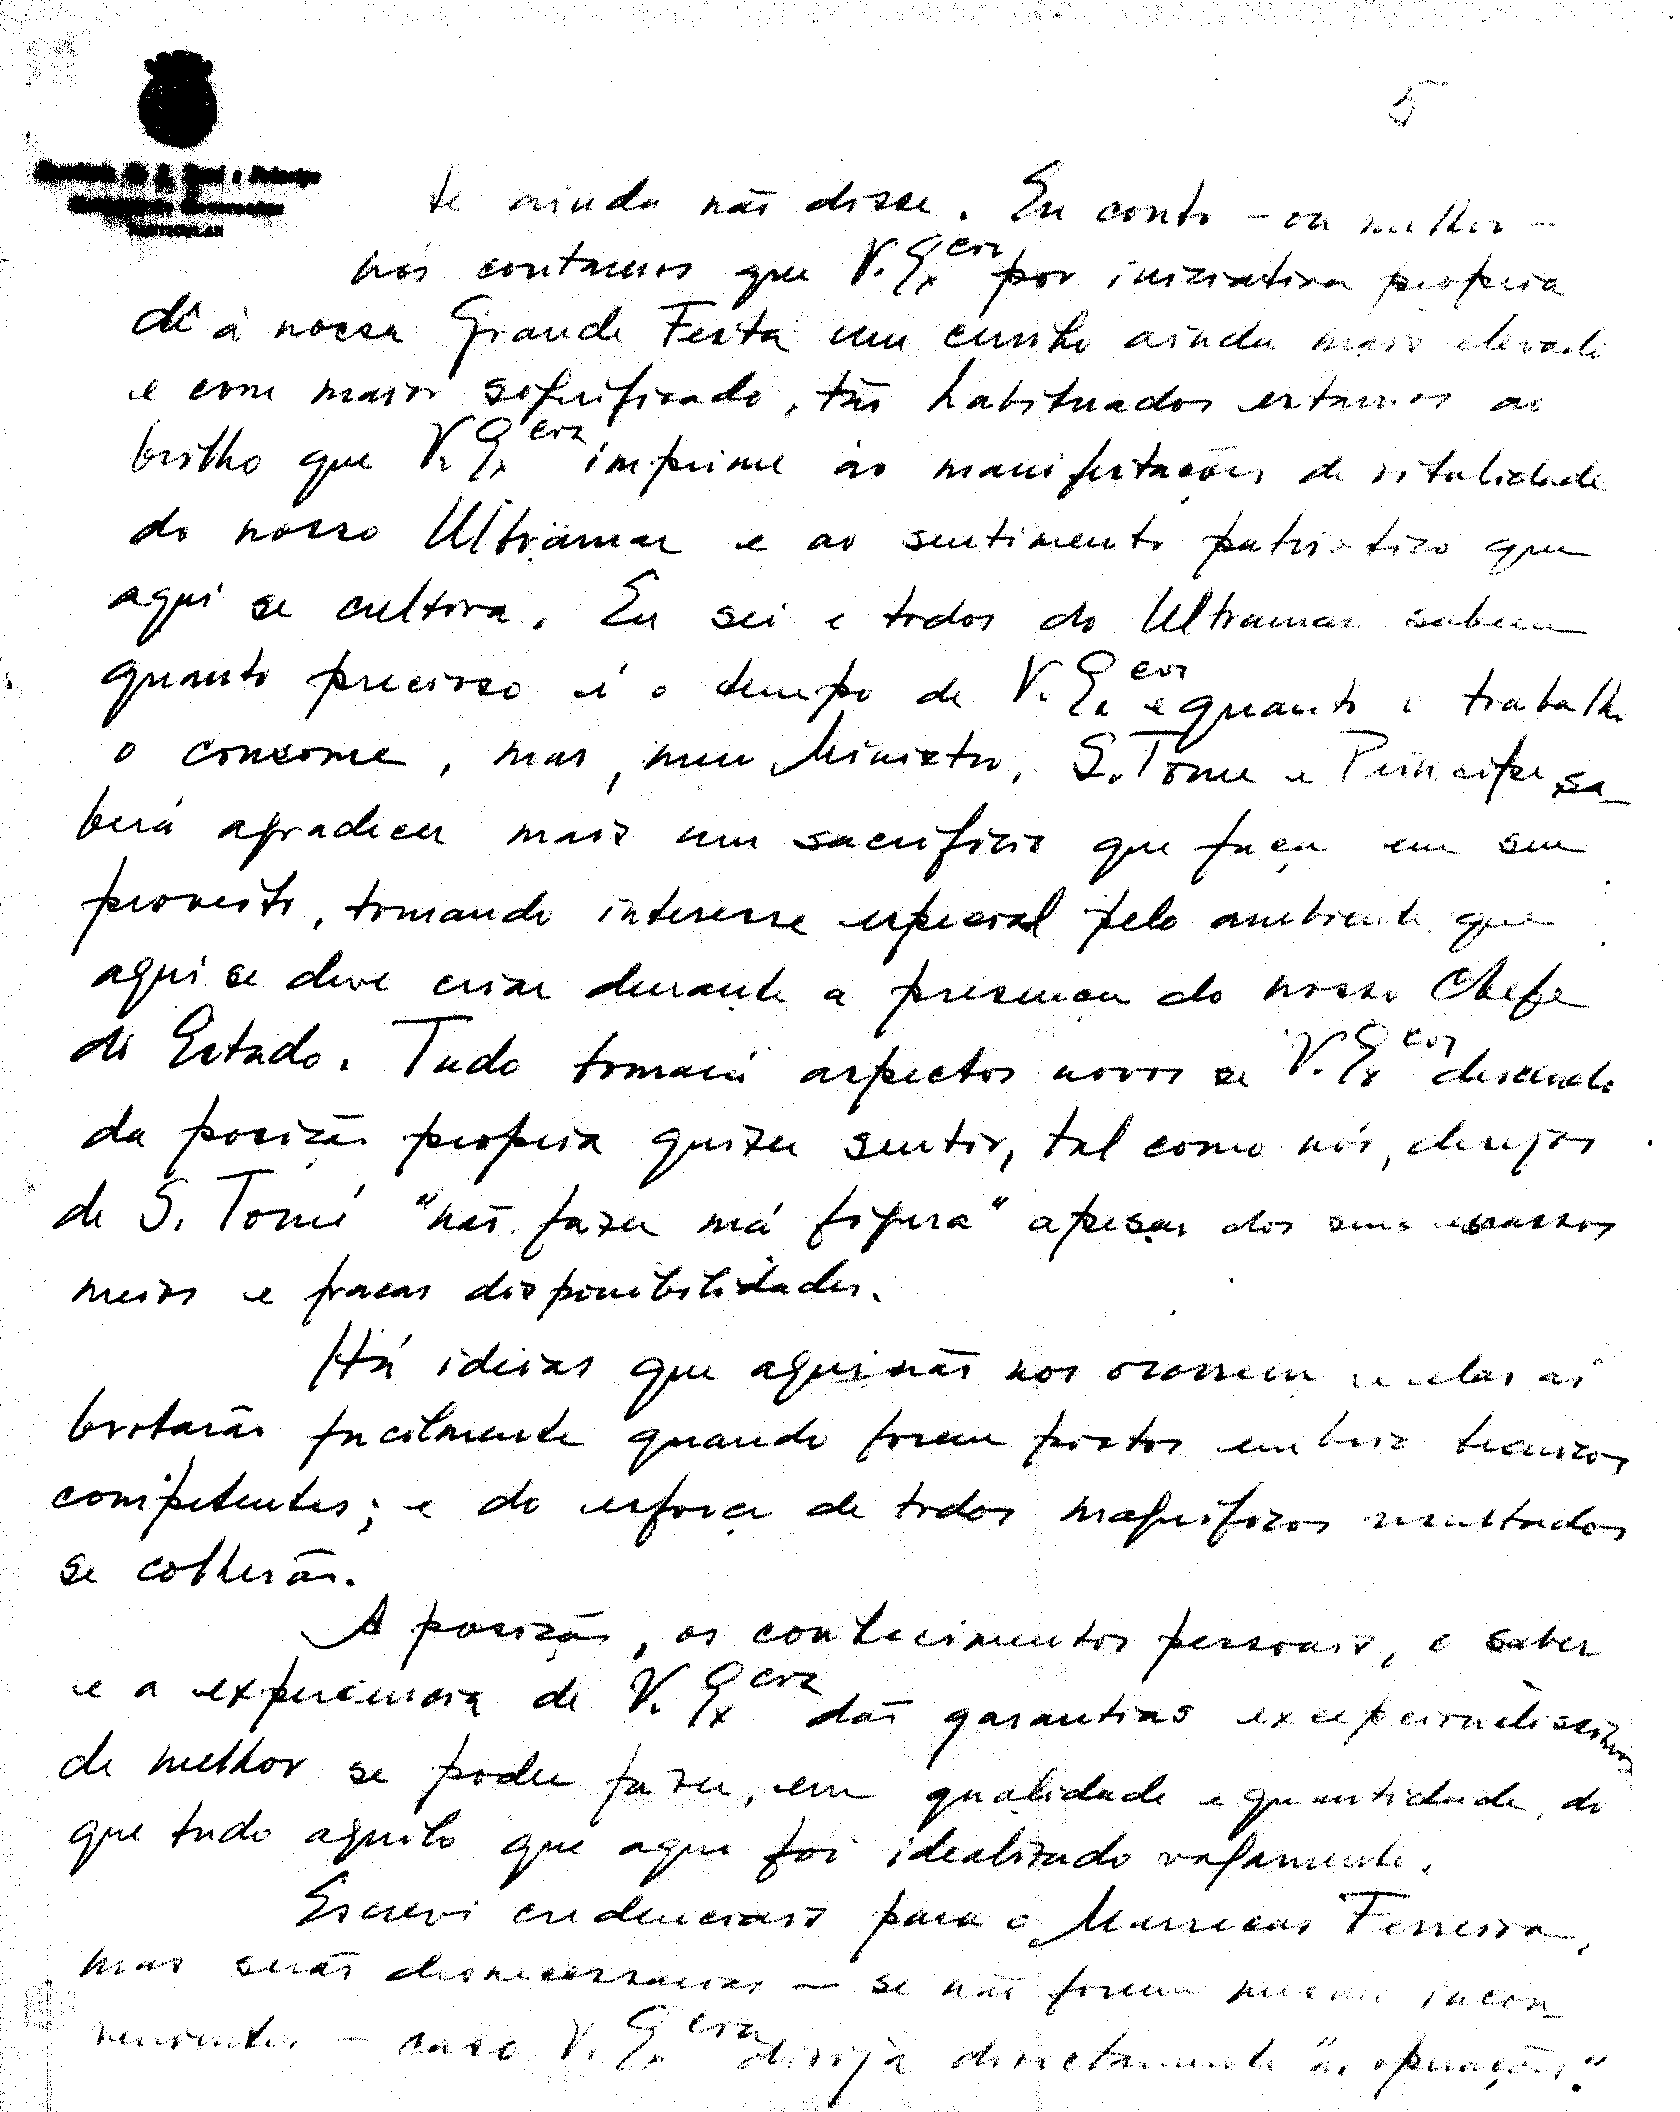 5
te ainda não disse. Eu conto – ou melhor –
nós contamos que V. Ex.cia por iniciativa propria
dê à nossa Grande Festa um cunho ainda mais elevado
e com maior significado, tão habituados estamos ao
brilho que V. Ex.cia imprime às manifestações de vitalidade
do nosso Ultramar e ao sentimento patriotico que
aqui se cultiva. Eu sei e todos do Ultramar sabem
quanto precioso é o tempo de V. Ex.cia e quanto o trabalho
o consome, mas, meu Ministro, S. Tomé e Principe sa-
berá agradecer mais um sacrificio que faça em seu
proveito, tomando interesse especial pelo ambiente que
aqui se deve criar durante a presença do nosso Chefe
do Estado. Tudo tomará aspectos novos se V. Ex.cia descendo
da posição propria quizer sentir, tal como nós, desejos
de S. Tomé "não fazer má figura" apesar dos seus escassos
meios e fracas disponibilidades.
Há ideias que aqui não nos ocorrem e elas aí
brotarão facilmente quando forem postos em brio tecnicos
competentes; e do esforço de todos magnificos resultados
se colherão.
A posição, os conhecimentos pessoais, o saber
e a experiencia de V. Ex.cia dão garantias excepcionalissimas
de melhor se poder fazer, em qualidade e quantidade, do
que tudo aquilo que aqui foi idealizado vagamente.
Escrevi credenciais para o Marrecas Ferreira,
mas serão desnecessarias – se não forem mesmo incon-
venientes – caso V. Ex.cia dirija directamente "as operações".